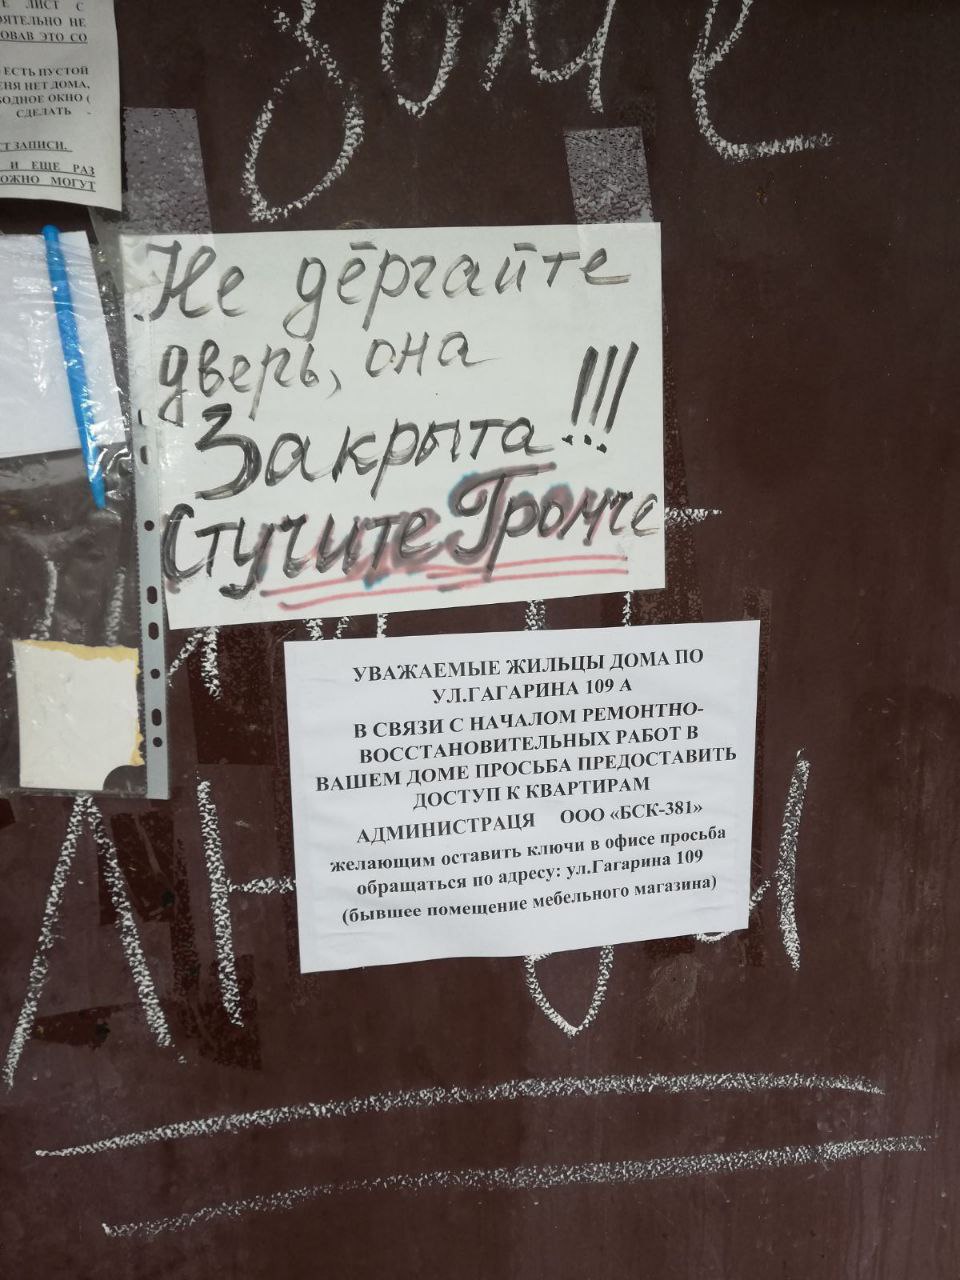 ЛИСТ С
НЕ
ЭТО СО
ЕСТЬ ПУСТОЙ
НЕТ ДОМА,
ОКНО (
СДЕЛАТЬ
ЗАПИСИ.
И ЕЩЕ РАЗ
МОГУТ
Не дёргайте
дверь, она
Закрыта!!!
Стучите Громче
УВАЖАЕМЫЕ ЖИЛЬЦЫ ДОМА ПО
УЛ.ГАГАРИНА 109 А
В СВЯЗИ С НАЧАЛОМ РЕМОНТНО-
ВОССТАНОВИТЕЛЬНЫХ РАБОТ В
ВАШЕМ ДОМЕ ПРОСЬБА ПРЕДОСТАВИТЬ
ДОСТУП К КВАРТИРАМ
АДМИНИСТРАЦЯ ООО «БСК-381»
желающим оставить ключи в офисе просьба
обращаться по адресу: ул.Гагарина 109
(бывшее помещение мебельного магазина)